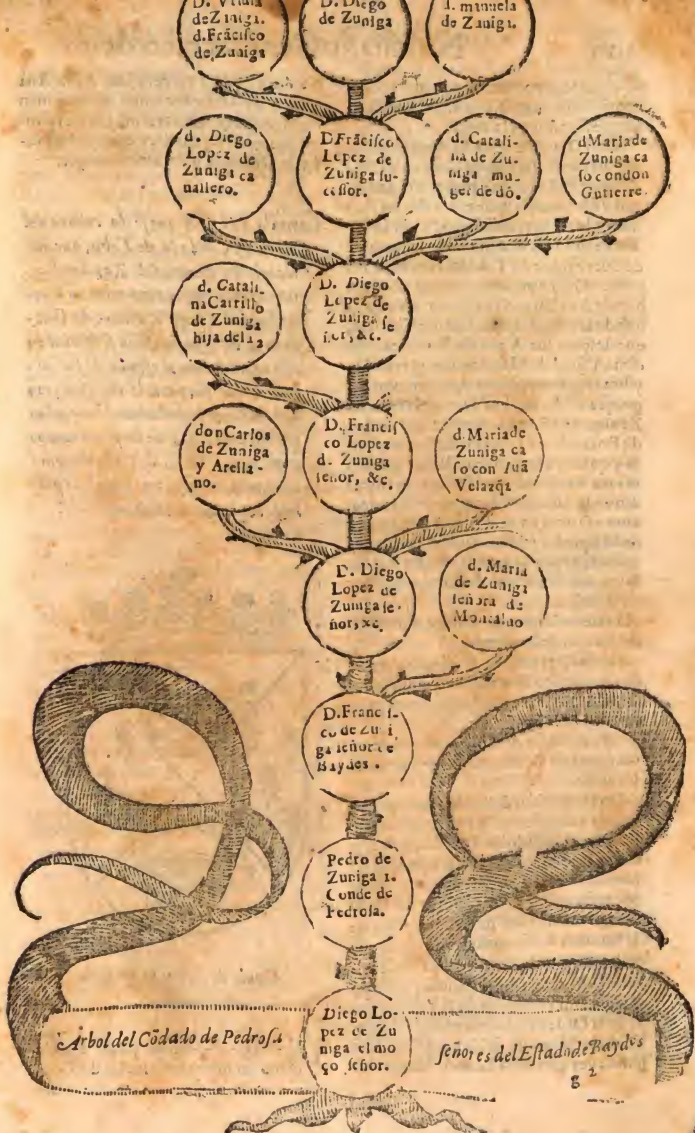 D. Vrsula
de Zuniga.
d. Frãcisco
de Zuniga
D. Diego
de Zuniga
d. manuela
de Zuniga.
d. Diego
Lopez de
Zuniga ca
uallero.
D Frãcisco
Lopez de
Zuniga su-
cessor.
d. Catali-
na de Zu-
niga mu-
ger de dõ.
d Maria de
Zuniga ca
so con don
Gutierre.
d. Catali-
na Carrillo
de Zuniga
hija de la 2
D. Diego
Lopez de
Zuniga se
ñor, &c.
don Carlos
de Zuniga
y Arella-
no.
D. Francis
co Lopez
d. Zuniga
señor, &c.
d. Maria de
Zuniga ca
so con Iuã
Velazqz
D. Diego
Lopez de
Zuniga se-
ñor, &c.
d. Maria
de Zuniga
señora de
Moncaluo
D. Franciſ-
co de Zuñi
ga señor de
Baydes.
Pedro de
Zuniga 1.
Conde de
Pedrosa.
Diego Lo-
pez de Zu
niga el mo
ço señor.
Arbol del Cõdado de Pedrosa
señores del Estado de Baydes
g 2